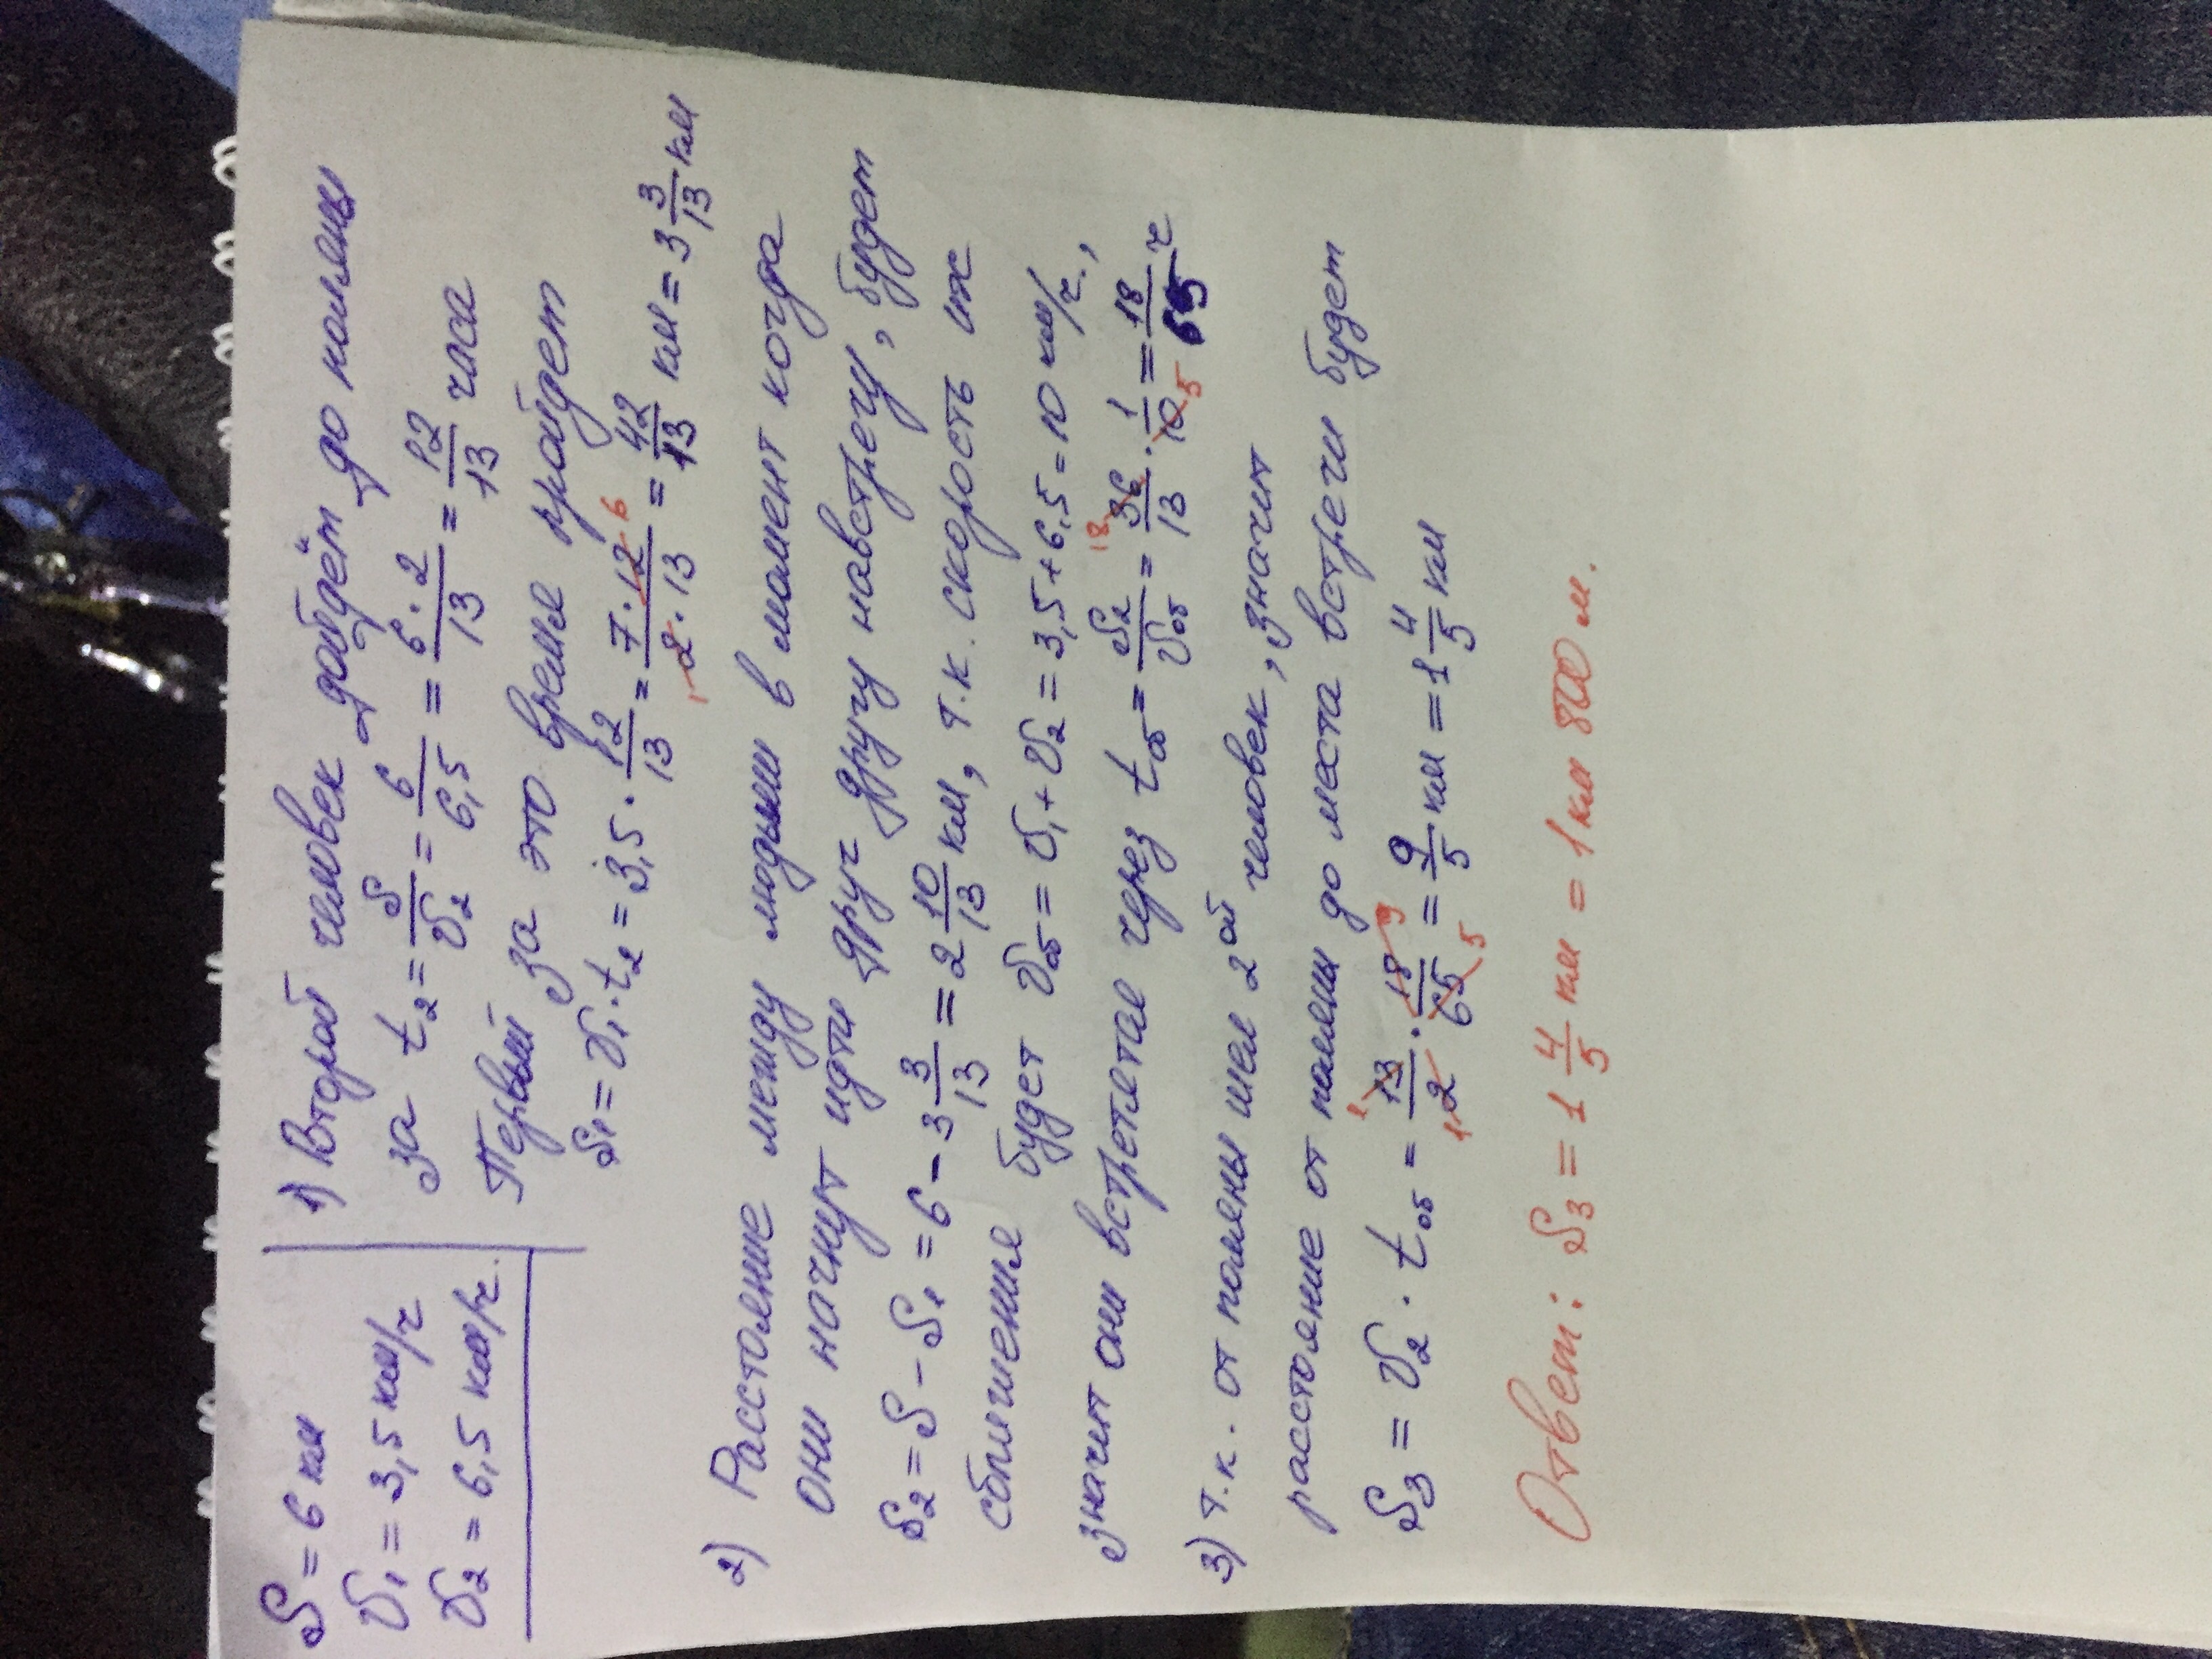 S = 6 км
V₁ = 3,5 км/ч
V₂ = 6,5 км/ч.
1) Второй человек дойдёт до поляны
за t₂ = S/V₂ = 6/6,5 = 6·2/13 = 12/13 часа
Первый за это время пройдет
S₁ = V₁·t₂ = 3,5 · 12/13 = 7·12/2·13 = 42/13 км = 3 3/13 км
1 6
2) Расстояние между людьми в момент когда
они начнут идти друг другу навстречу, будет
S₂ = S – S₁ = 6 – 3 3/13 = 2 10/13 км, т.к. скорость их
сближения будет Vоб = V₁ + V₂ = 3,5 + 6,5 = 10 км/ч.,
значит они встретятся через tоб = S₂/Vоб = 36/13 · 1/10 = 18/65 ч
18 5
3) т.к. от поляны шел 2ой человек, значит
расстояние от поляны до места встречи будет
S₃ = V₂ · tоб = 13/2 · 18/65 = 9/5 км = 1 4/5 км
1 1 9 5
Ответ: S₃ = 1 4/5 км = 1 км 800 м.